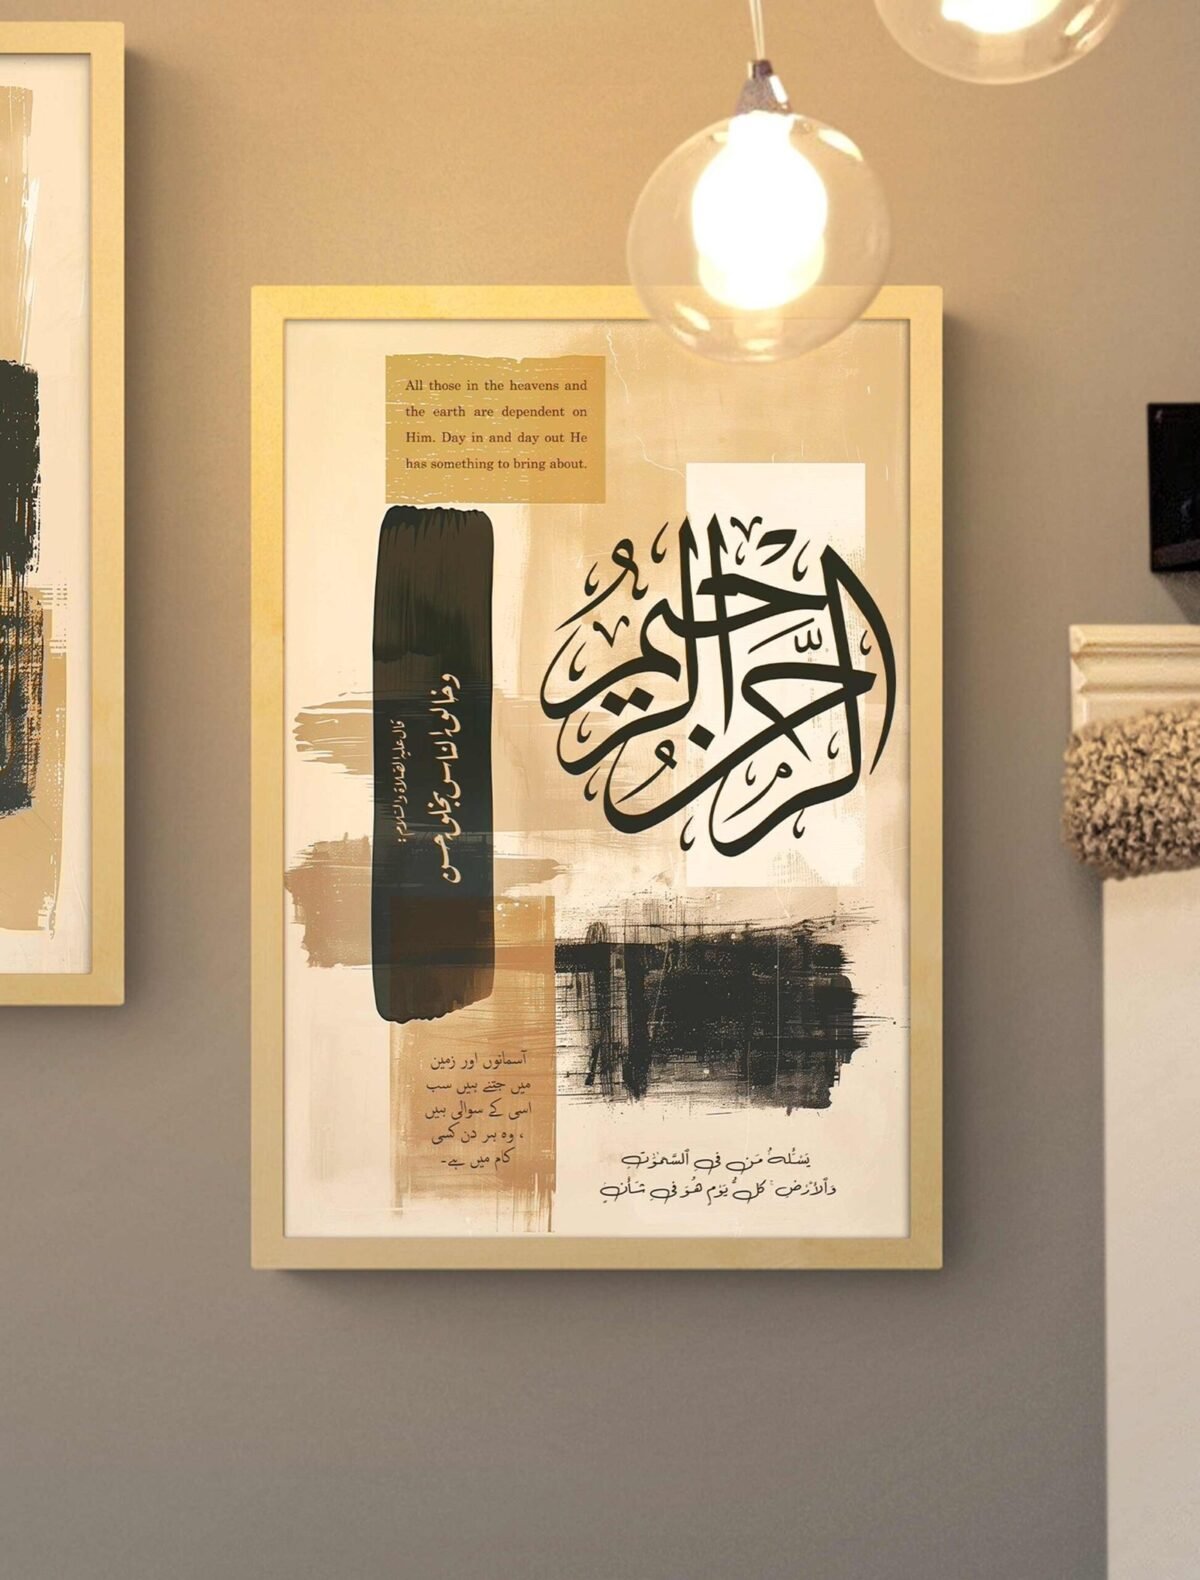 All those in the heavens and
the earth are dependent on
Him. Day in and day out He
has something to bring about.
الرحمن الرحيم
قال عليه الصلاة والسلام:
وخالق الناس بخلق حسن
آسمانوں اور زمین
میں جتنے ہیں سب
اسی کے سوالی ہیں
، وہ ہر دن کسی
کام میں ہے۔
يَسْـَٔلُهُ مَن فِى ٱلسَّمَٰوَٰتِ
وَٱلْأَرْضِ ۚ كُلَّ يَوْمٍ هُوَ فِى شَأْنٍ